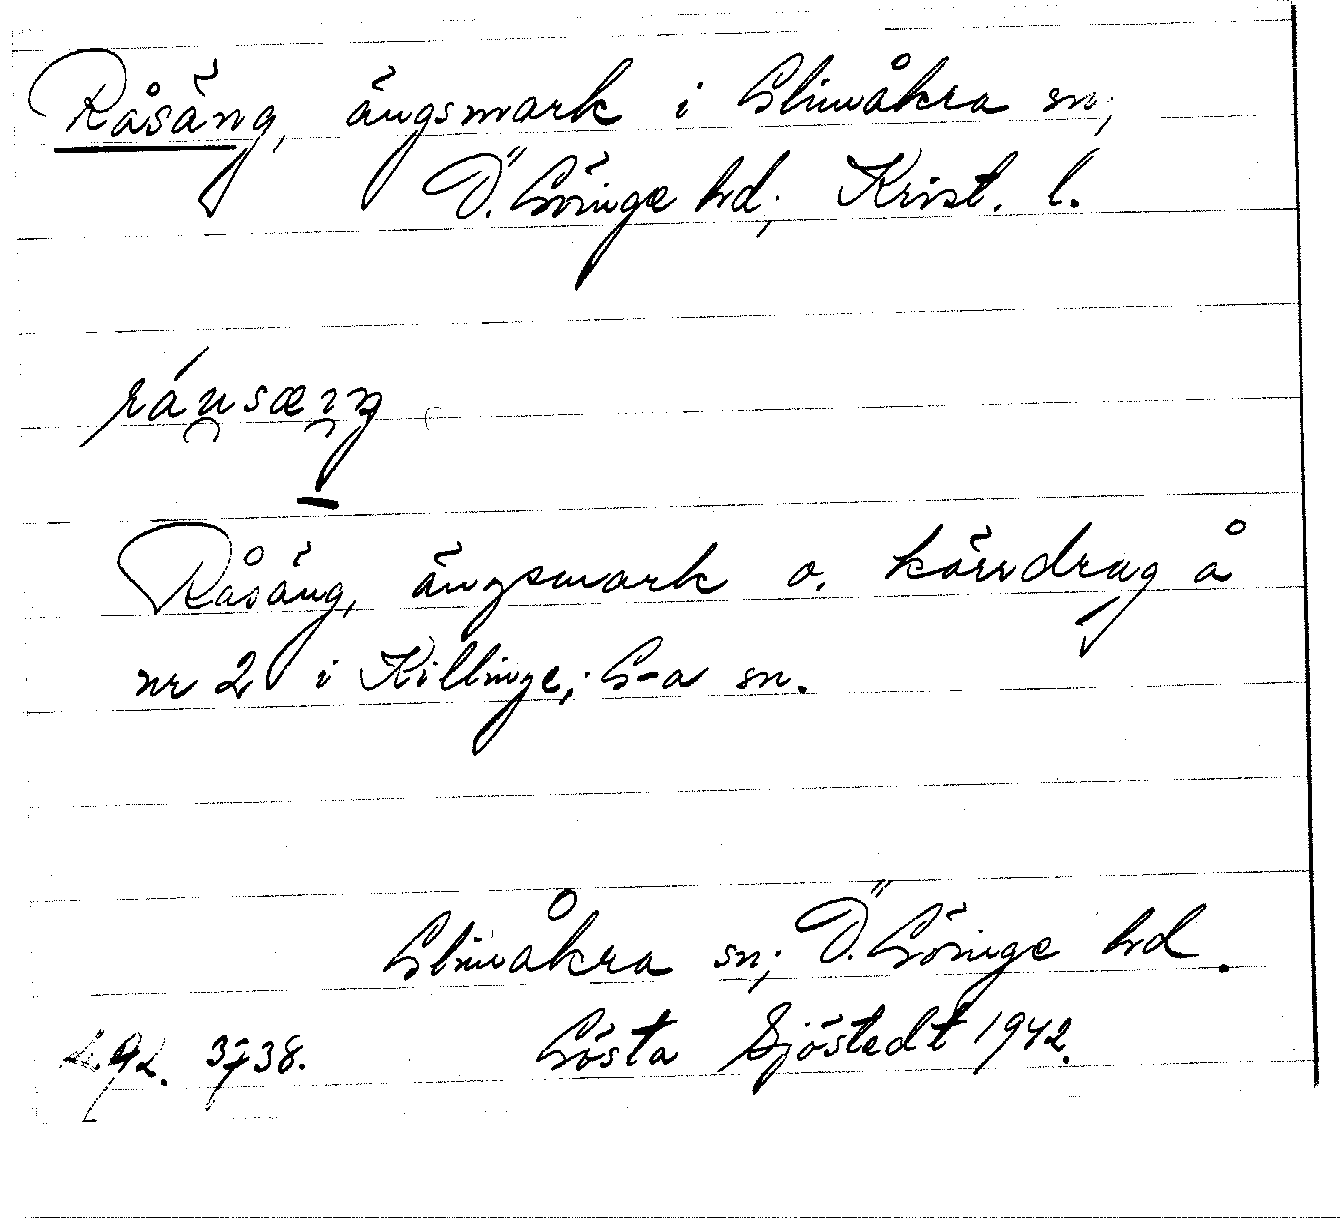 Råsäng, ängsmark i Glimåkra sn;
Ö. Göinge hd; Krist. l.
Råsäng, ängsmark o. kärrdrag å
nr 2 i Killinge; G-a sn.
Glimåkra sn; Ö. Göinge hd.
3738. Gösta Sjöstedt 1942.